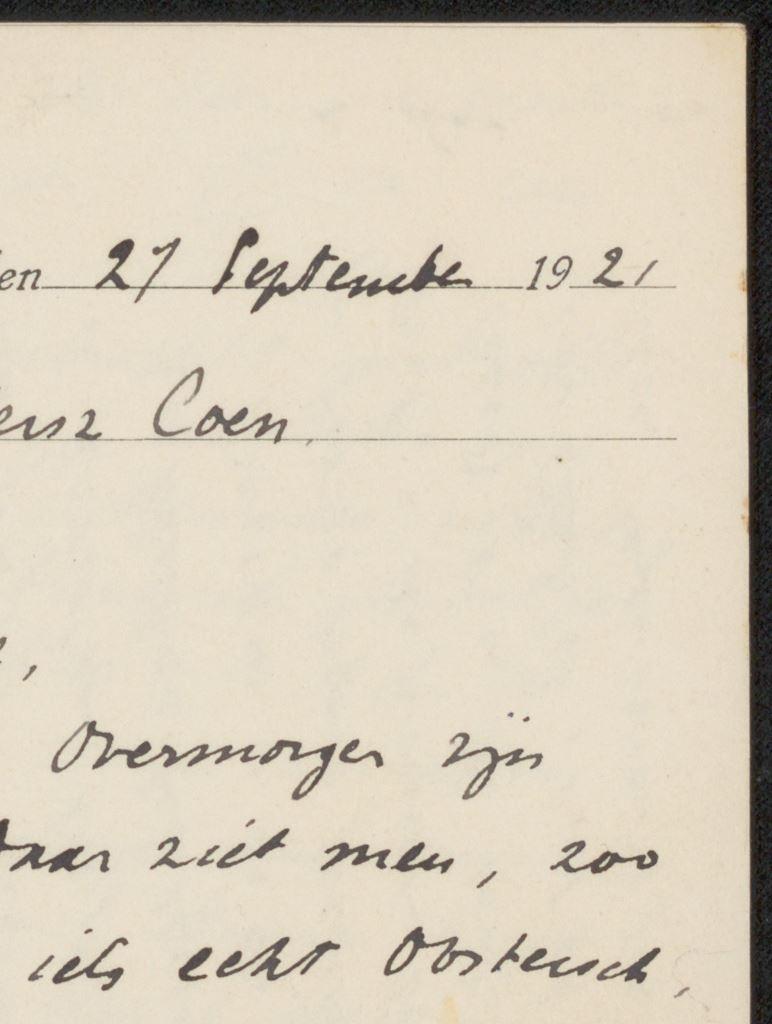 en 27 September 1921
ersz Coen.
,
Overmorgen zijn
daar ziet men, zoo
iets echt Oostersch,